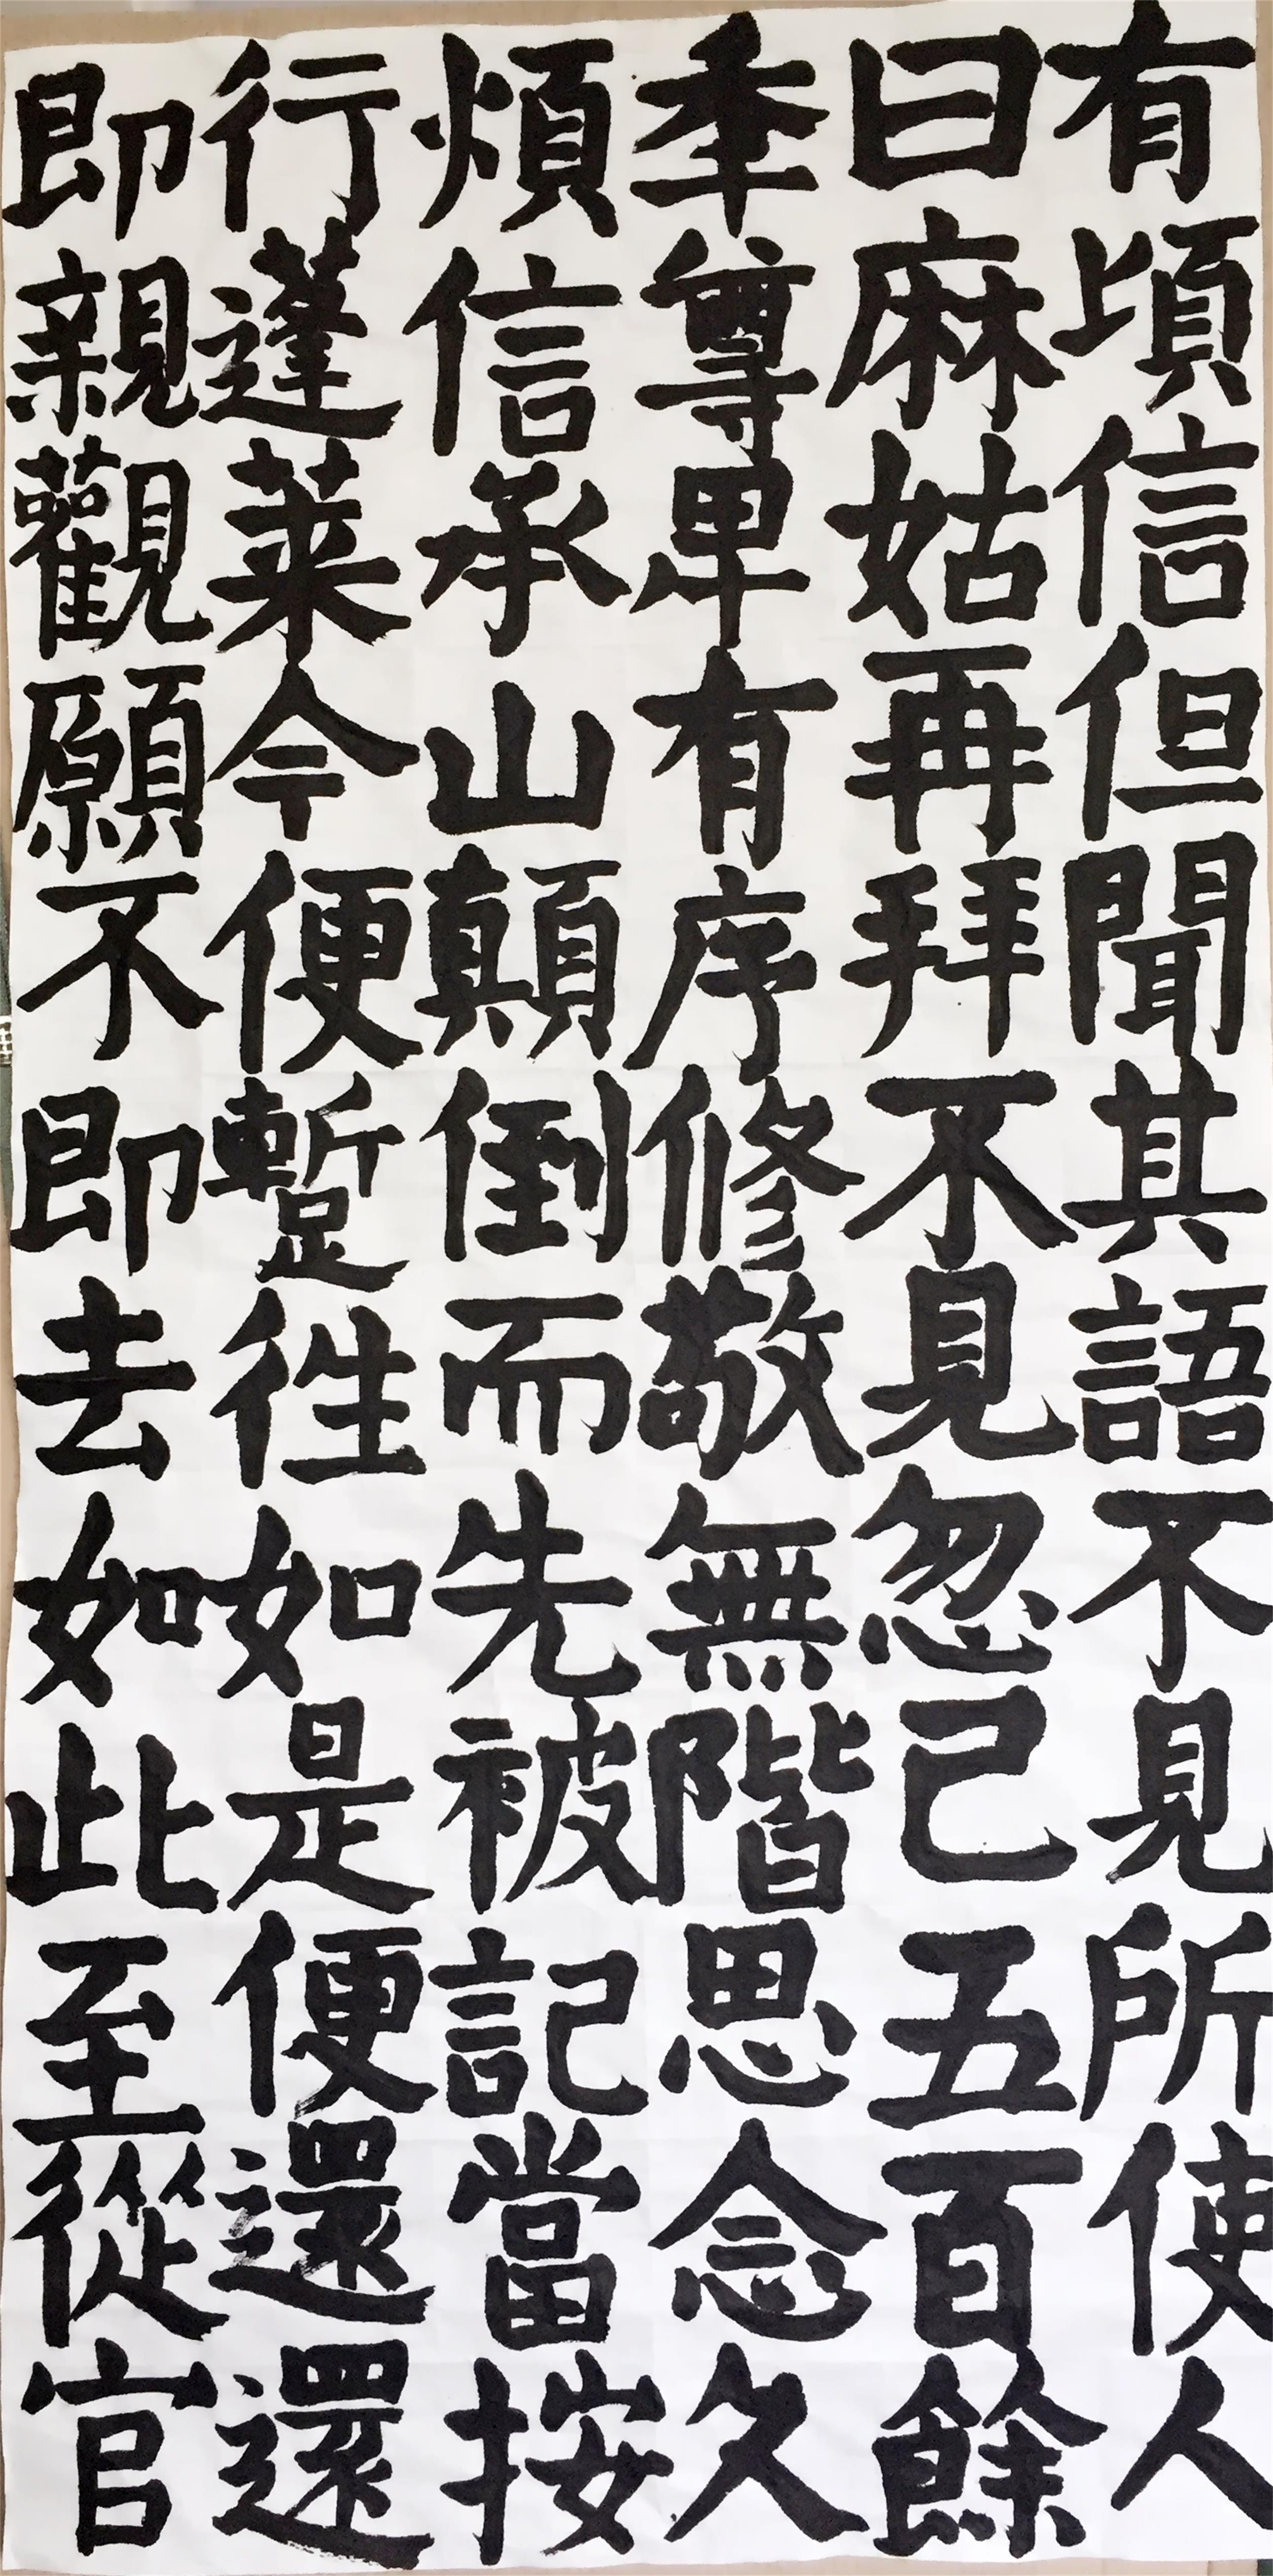 有頃信但聞其語不見所使人
曰麻姑再拜不見忽已五百餘
年尊卑有序修敬無階思念久
煩信承山顛倒而先被記當按
行蓬萊今便蹔往如是便還還
即親觀願不即去如此至從官